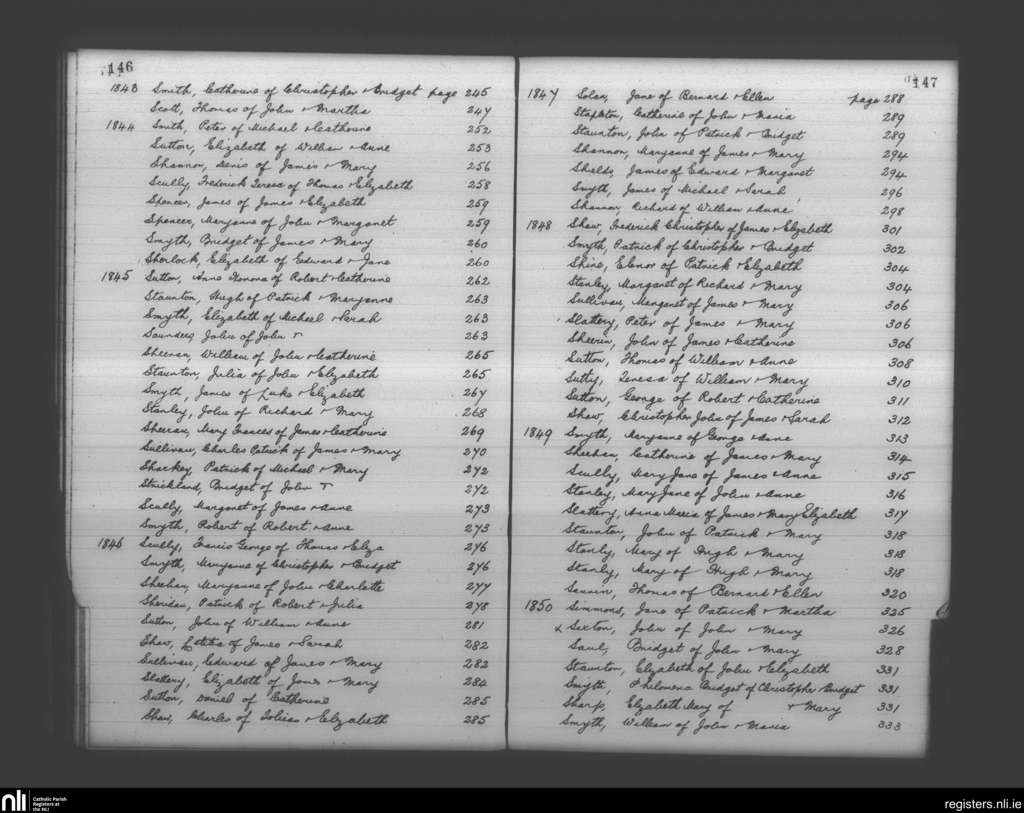 146
1843 Smith, Catherine of Christopher + Bridget page 245
Scott, Thomas of John + Martha 247
1844 Smith, Peter of Michael + Catherine 252
Sutton, Elizabeth of William + Anne 253
Shannon, Denis of James + Mary 256
Scully, Frederick Teresa of Thomas + Elizabeth 258
Spencer, James of James + Elizabeth 259
Spencer, Maryanne of John + Margaret 259
Smyth, Bridget of James + Mary 260
Sherlock, Elizabeth of Edward + Jane 260
1845 Sutton, Anne Honora of Robert + Catherine 262
Staunton, Hugh of Patrick + Maryanne 263
Smyth, Elizabeth of Michael + Sarah 263
Saunders, John of John + 263
Sheeran, William of John + Catherine 265
Staunton, Julia of John + Elizabeth 265
Smyth, James of Luke + Elizabeth 267
Stanley, John of Richard + Mary 268
Sheeran, Mary Frances of James + Catherine 269
Sullivan, Charles Patrick of James + Mary 270
Sharkey, Patrick of Michael + Mary 272
Strickland, Bridget of John + 272
Scully, Margaret of James + Anne 273
Smyth, Robert of Robert + Anne 273
1846 Scully, Francis George of Thomas + Eliza 276
Smyth, Maryanne of Christopher + Bridget 276
Sheehan, Maryanne of John + Charlotte 277
Sheridan, Patrick of Robert + Julia 278
Sutton, John of William + Anne 281
Shaw, Letitia of James + Sarah 282
Sullivan, Edward of James + Mary 282
Slattery, Elizabeth of James + Mary 284
Sutton, Daniel of Catherine 285
Shaw, Charles of + Elizabeth 285
147
1847 Jane of Bernard + Ellen page 288
Stapleton, Catherine of John + Maria 289
Staunton, John of Patrick + Bridget 289
Shannon, Maryanne of James + Mary 294
Shields, James of Edward + Margaret 294
Smyth, James of Michael + Sarah 296
Shannon, Richard of William + Anne 298
1848 Shaw, Frederick Christopher of James + Elizabeth 301
Smyth, Patrick of Christopher + Bridget 302
Shine, Elenor of Patrick + Elizabeth 304
Stanley, Margaret of Richard + Mary 304
Sullivan, Margaret of James + Mary 306
Slattery, Peter of James + Mary 306
Sheerin, John of James + Catherine 306
Sutton, Thomas of William + Anne 308
Teresa of William + Mary 310
Sutton, George of Robert + Catherine 311
Shaw, Christopher John of James + Sarah 312
1849 Smyth, Maryanne of George + Anne 313
Sheehan, Catherine of James + Mary 314
Scully, Mary Jane of James + Anne 315
Stanley, Mary Jane of John + Anne 316
Slattery, Anna Maria of James + Mary Elizabeth 317
Staunton, John of Patrick + Mary 318
Stanly, Mary of Hugh + Mary 318
Stanly, Mary of Hugh + Mary 318
Thomas of Bernard + Ellen 320
1850 Simmons, Jane of Patrick + Martha 325
x Sexton, John of John + Mary 326
Saul, Bridget of John + Mary 328
Staunton, Elizabeth of John + Elizabeth 331
Smyth, Philomena Bridget of Christopher + Bridget 331
Sharp, Elizabeth Mary of + Mary 331
Smyth, William of John + Maria 333
nli Catholic Parish
Registers at
the NLI
registers.nli.ie